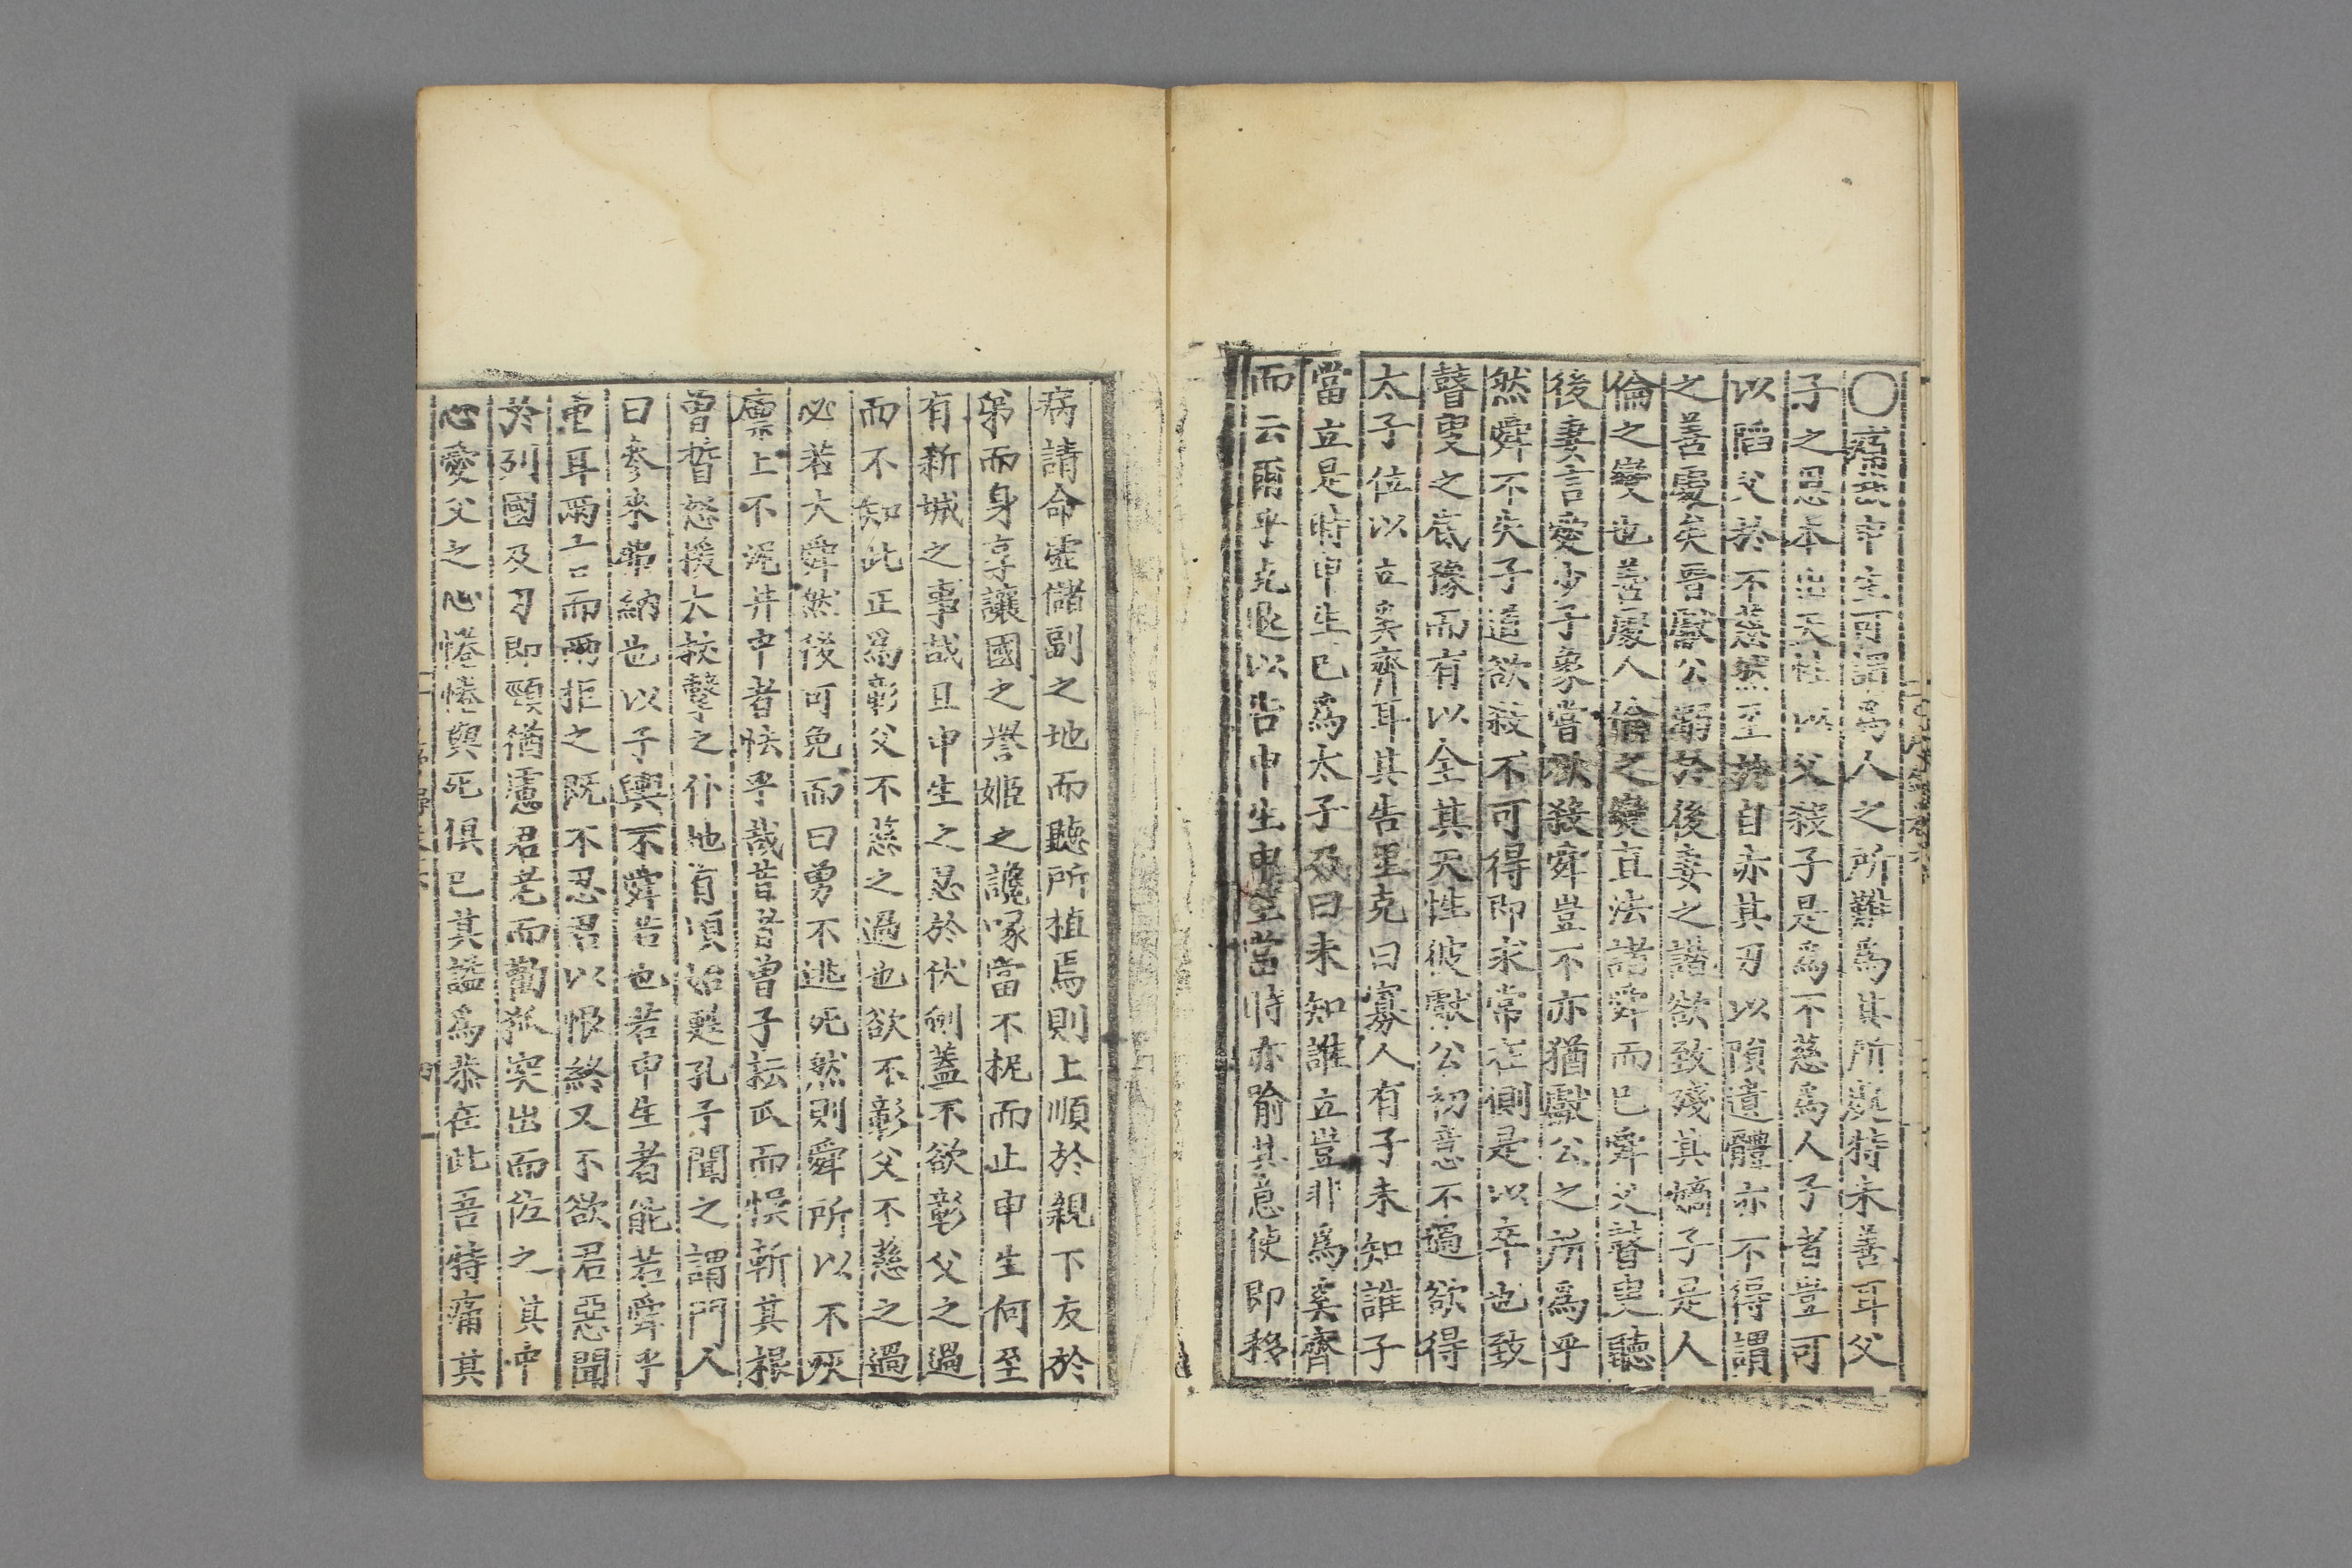 〇癋哉申生可謂爲人之所難爲其所處特未善耳父
子之恩本出天性以父殺子是爲不慈爲人子者豈可
以陷父於不慈然至於自亦其刃以隕遺體亦不得謂
之善處矣晋獻公溺於後妻之譖欲致殘其嫡子是人
倫之變也善處人倫之變直法諸舜而已舜父瞽叟聽
後妻言愛少子象嘗欲殺舜豈不亦猶獻公之所爲乎
然舜不失子道欲殺不可得即求常在側是以卒也致
瞽叟之底豫而有以全其天性彼獻公初意不過欲得
太子位以立奚齊耳其告里克曰寡人有子未知誰子
當立是時申生已爲太子及曰未知誰立豈非爲奚齊
而云爾乎克退以告申生申生當時亦喻其意使即移
病請命虛儲副之地而聽所植焉則上順於親下友於
弟而身享讓國之譽姬之讒喙當不柅而止申生何至
有新城之事哉且申生之忍於伏劒蓋不欲彰父之過
而不知此正爲彰父不慈之過也欲不彰父不慈之過
必若大舜然後可免而曰勇不逃死然則舜所以不灰
廩上不泥井中者怯乎哉昔者曾子耘瓜而悞斬其根
曾晳怒援大杖擊之仆地有頃始甦孔子聞之謂門人
曰參來弗納也以子輿不舜若也若申生者能若舜乎
重耳兩言而兩拒之既不忍君以恨終又不欲君惡聞
於列國及刃即頸猶慮君老而勸狐突出而佐之其中
心愛父之心惓惓與死俱已其謚爲恭在此吾特痛其